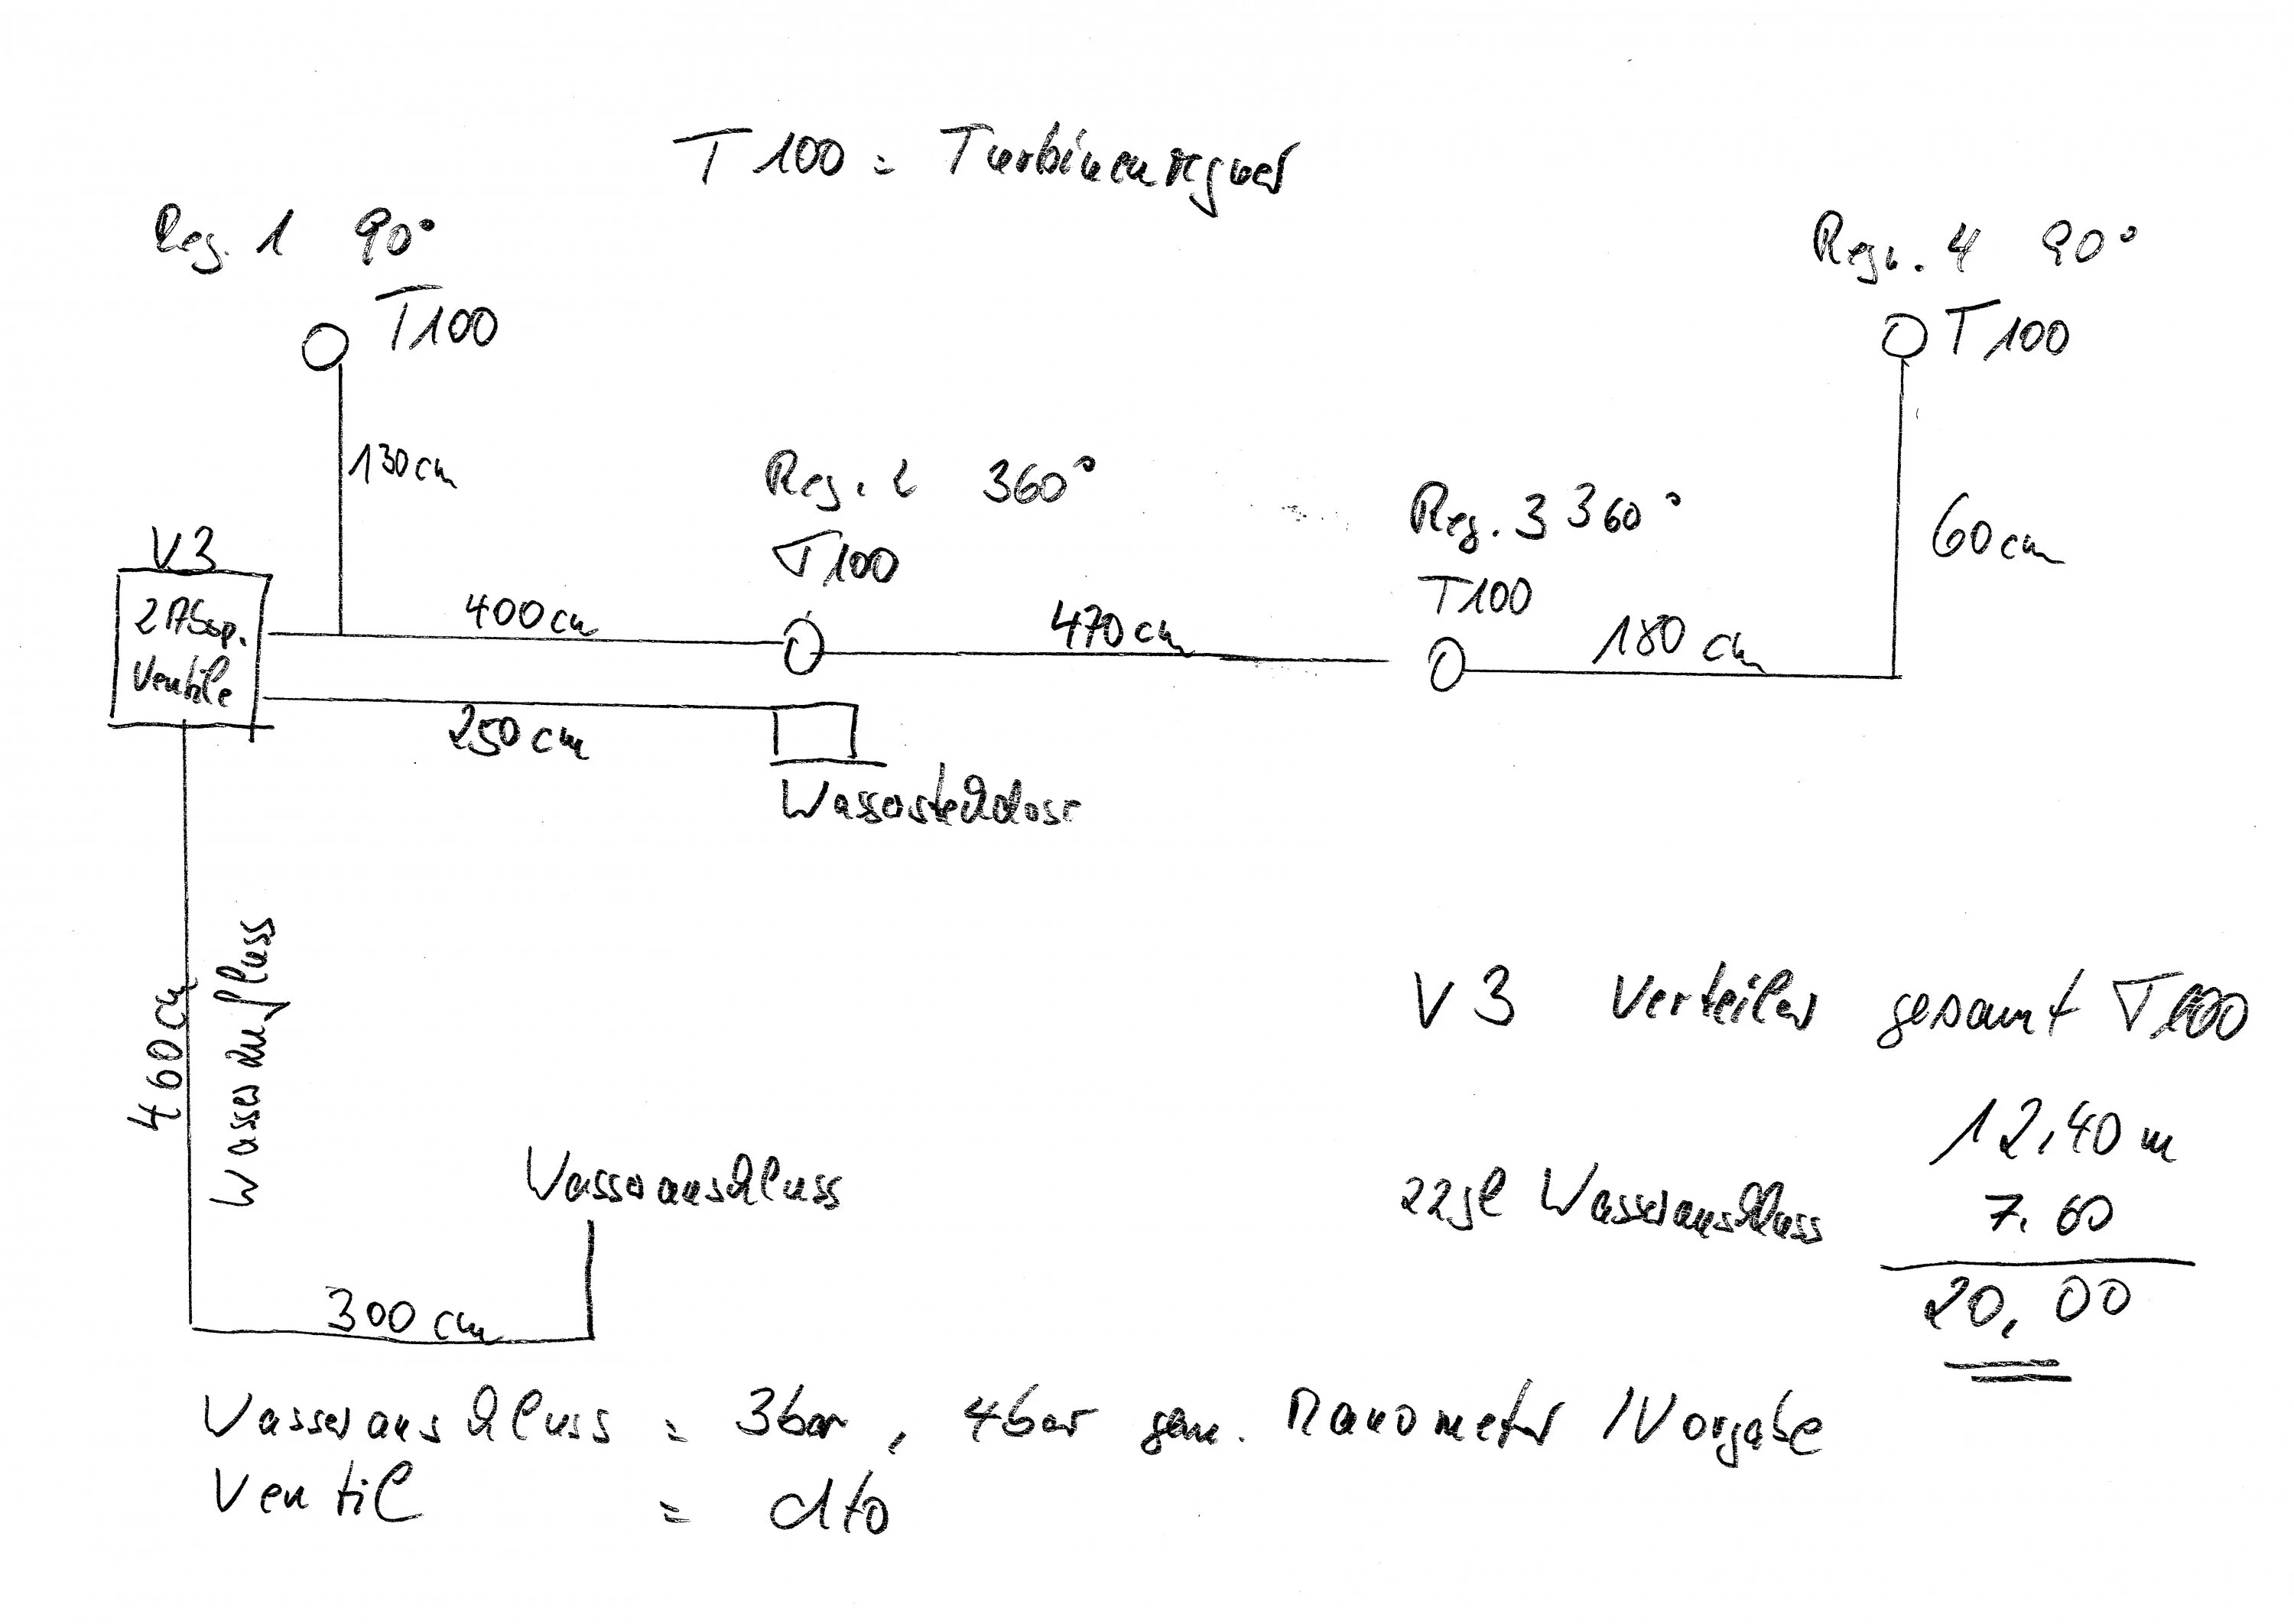 T 100 = Turbinenregner
Reg. 1 90°
T100
Regn. 4 90°
T100
130cm
Reg. 2 360°
T100
Reg. 3 360°
T100
60cm
V3
2 Absp.
Ventile
400cm
470cm
180 cm
250 cm
Wassersteckdose
460cm
Wasserzufluss
V3 Verteiler gesamt T100
12,40 m
zzgl Wasseranschluss 7.60
20,00
Wasseranschluss
300 cm
Wasseranschluss = 3bar, 4bar gem. Manometer / Vorgabe
Ventil = dto